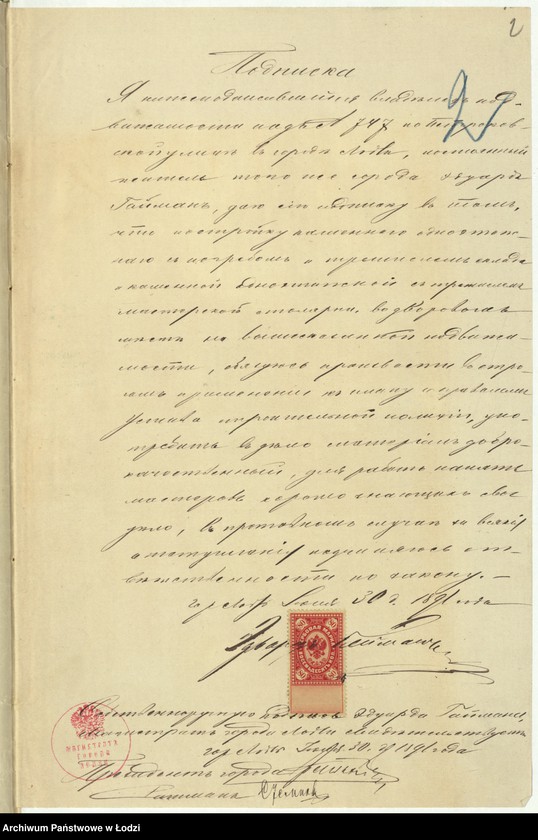 2
Подписка
Я нижеподписавшійся владѣлецъ нед-
вижимости подъ № 747 по Петроков-
ской улицѣ въ городѣ Лодзи, постоянный
житель того же города Эдуардъ
Гайманъ, даю сію подписку въ томъ,
что постройку каменного одноэтаж-
наго съ погребомъ и
и каменной одноэтажной съ
мастерской столярни, во дворовомъ
мѣстѣ на вышесказанной недвижи-
мости, обязуюсь произвести въ стро-
гомъ примѣненіи къ плану и правиламъ
Устава строительной полиціи, упо-
требить въ дѣло матеріалъ добро-
качественный, для работъ нанять
мастеровъ хорошо знающихъ свое
дѣло, въ противномъ случаѣ за всякія
отступленія подчиняюсь от-
вѣтственности по закону. —
гор. Лодзь Іюля 30 д. 1891 года
Эдуардъ Гейманъ
80 80
Собственноручную подпись Эдуарда Гаймана,
Магистратъ города Лодзи свидѣтельствуетъ
гор. Лодзь Іюля 30 д. 1891 года
Президентъ города
МАГИСТРАТЪ
ГОРОДА
ЛОДЗИ
Archiwum Państwowe w Łodzi